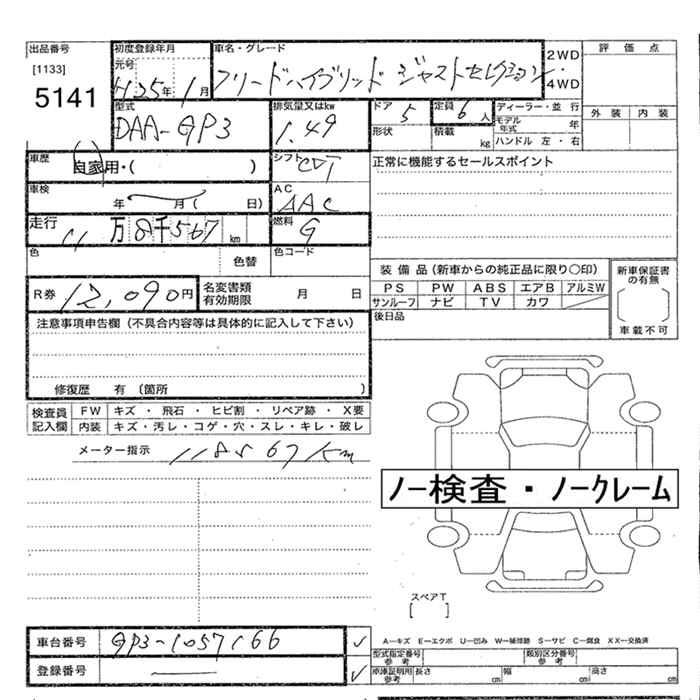 出品番号
[1133]
5141
初度登録年月
元号
H25年 1月
車名・グレード
フリードハイブリッド ジャストセレクション
2WD
・
4WD
評価点
外装 内装
型式
DAA-GP3
排気量又はkw
1.49
ドア 5
形状
定員 6人
積載 kg
ディーラー・並行
モデル年式 年
ハンドル 左・右
車歴
自家用・( )
シフト
CVT
正常に機能するセールスポイント
車検
年 月( 日)
AC
AAC
走行
11万8千567km
燃料
G
色
色替
色コード
R券 12,090円
名変書類
有効期限 月 日
装備品(新車からの純正品に限り〇印)
PS PW ABS エアB アルミW
サンルーフ ナビ TV カワ
新車保証書
の有無
車載不可
後日品
注意事項申告欄(不具合内容等は具体的に記入して下さい)
修復歴 有(箇所 )
検査員
記入欄
FW キズ・飛石・ヒビ割・リペア跡・X要
内装 キズ・汚レ・コゲ・穴・スレ・キレ・破レ
メーター指示 118567km
ノー検査・ノークレーム
スペアT
[ ]
車台番号 GP3-1057166 ✓
登録番号 — ✓
A-キズ E-エクボ U-凹み W-補修跡 S-サビ C-腐食 XX-交換済
型式指定番号
参考
類別区分番号
参考
車庫証明用
参考
長さ cm 幅 cm 高さ cm